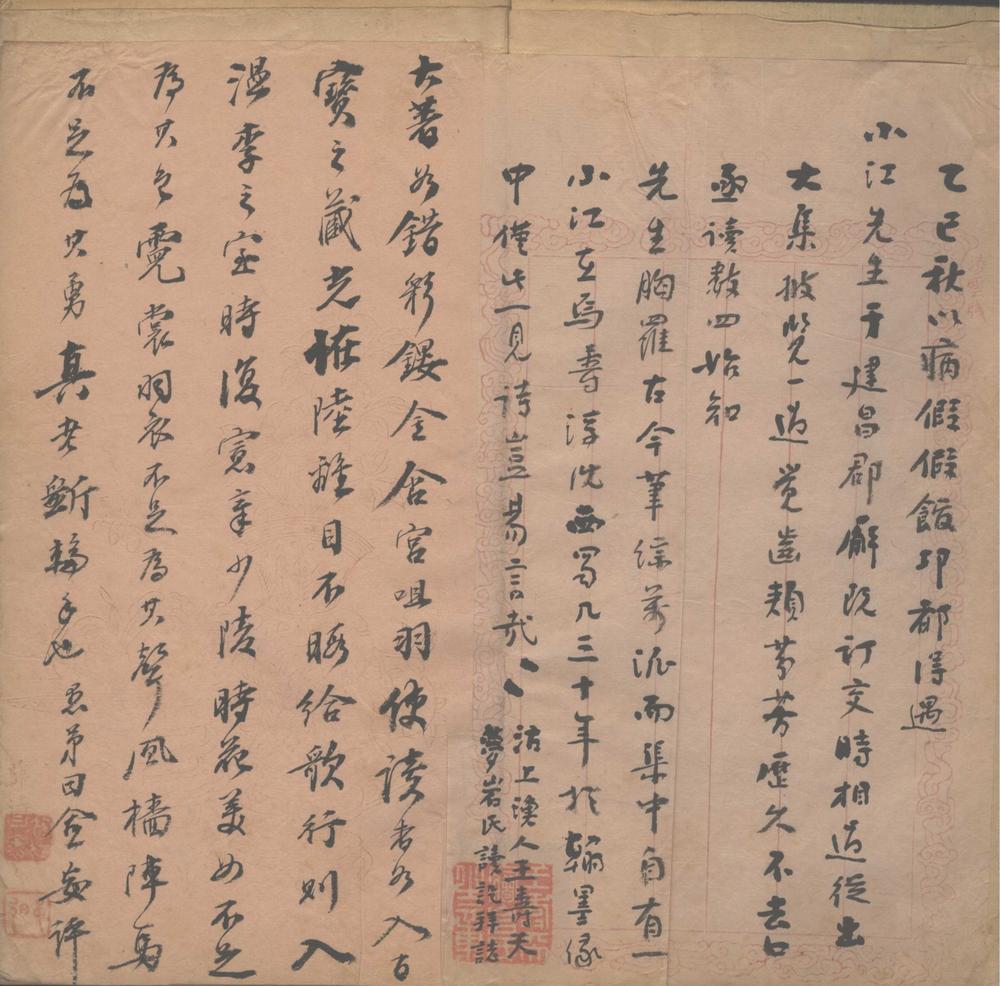 乙巳秋以病假假館邛都得遇
小江先生于建昌郡廨既訂交時相過從出
大集披覽一過覺齒頰芬芳歷久不去口
亟讀數四始知
先生胸羅古今筆綜萬派而集中自有一
小江在焉壽淳況西蜀凡三十年於翰墨緣
中僅此一見詩豈易言哉、、
沽上漁人王壽天
夢岩氏讀訖拜誌
大著如錯彩鏤金含宮咀羽使讀者如入百
寶之藏光怪陸離目不暇給歌行則入
溫李之室時復寃辜少陵時花美女不足
為其色霓裳羽衣不足為其聲風檣陣馬
不足為其勇真老斲輪手也愚弟田含海評